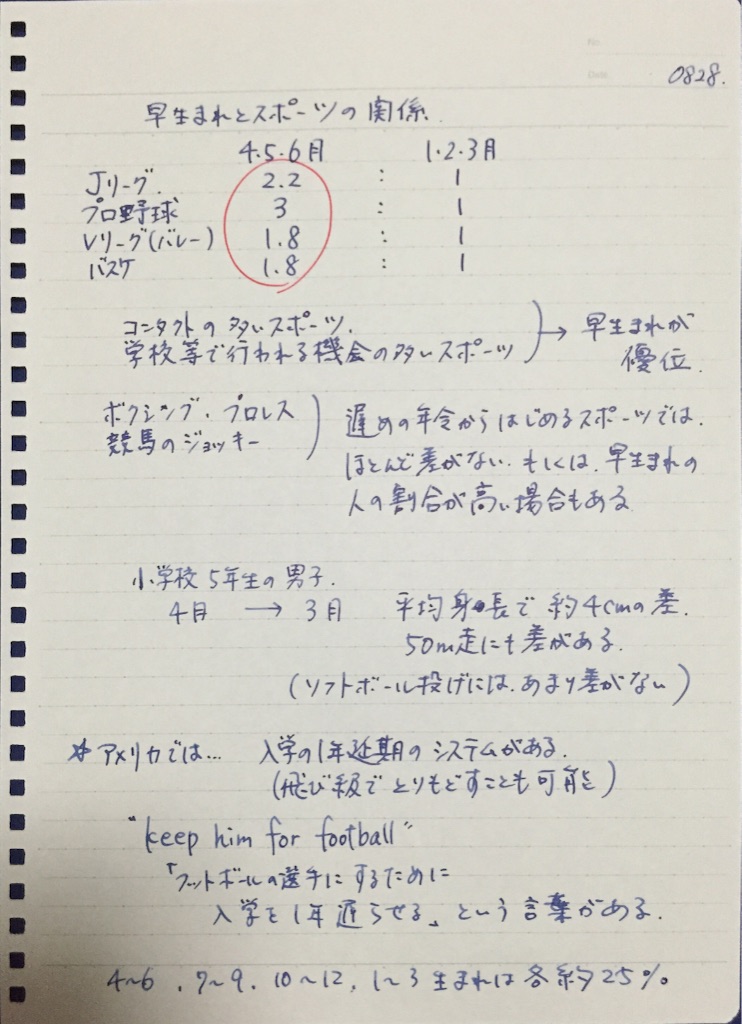 No.
Date
0828.
早生まれとスポーツの関係.
4.5.6月 1.2.3月
Jリーグ. 2.2 : 1
プロ野球 3 : 1
Vリーグ(バレー) 1.8 : 1
バスケ 1.8 : 1
コンタクトの多いスポーツ.
学校等で行われる機会の多いスポーツ
→ 早生まれが
優位.
ボクシング、プロレス
競馬のジョッキー
遅めの年令からはじめるスポーツでは、
ほとんど差がない. もしくは、早生まれの
人の割合が高い場合もある
小学校5年生の男子.
4月 → 3月 平均身長で約4cmの差.
50m走にも差がある.
(ソフトボール投げには、あまり差がない)
*アメリカでは... 入学の1年延期のシステムがある.
(飛び級でとりもどすことも可能)
"keep him for football"
「フットボールの選手にするために
入学を1年遅らせる」という言葉がある.
4~6、7~9、10~12、1~3生まれは各約25%。